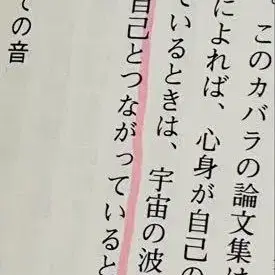 このカバラの論文集は
によれば、心身が自己の
ているときは、宇宙の波
自己とつながっていると
ての音